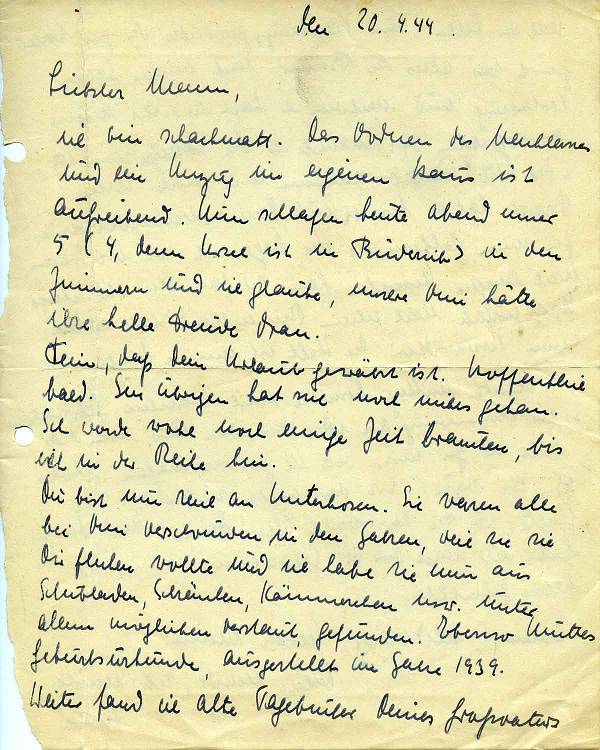 den 20.4.44.
Liebster Mann,
ich bin schachmatt. Das Ordnen des Nachlasses
und ein Umzug im eigenen Haus ist
aufreibend. Nun schlafen heute abend unser
5 (4, denn Ursel ist in ) in den
Zimmern und ich glaube, unsere Omi hätte
ihre helle Freude dran.
Fein, daß Dein Urlaub gewährt ist. Hoffentlich
bald. Im übrigen hat sich noch nichts getan.
Ich werde wohl noch einige Zeit brauchen, bis
ich in der Reihe bin.
Du bist nun reich an Unterhosen. Sie waren alle
bei Omi verschwunden in den Jahren, die sie sie
Dir flicken wollte und ich habe sie nun aus
Schubladen, Schränken, Kämmerchen usw. unter
allem möglichen verstaut, gefunden. Ebenso Mutters
Geburtsurkunde, ausgestellt im Jahre 1939.
Weiter fand ich alte Tagebücher Deines Großvaters